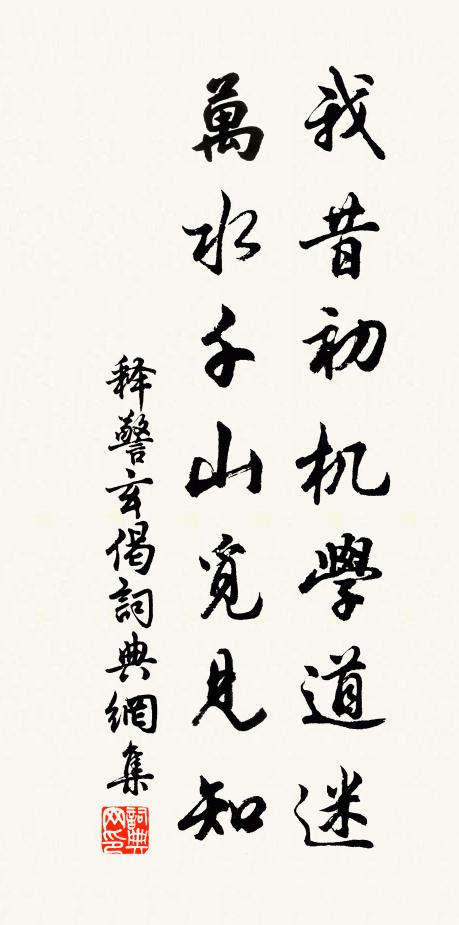 我昔初机學道迷
萬水千山覓見知
释警玄偈詞典網集
詞典网印